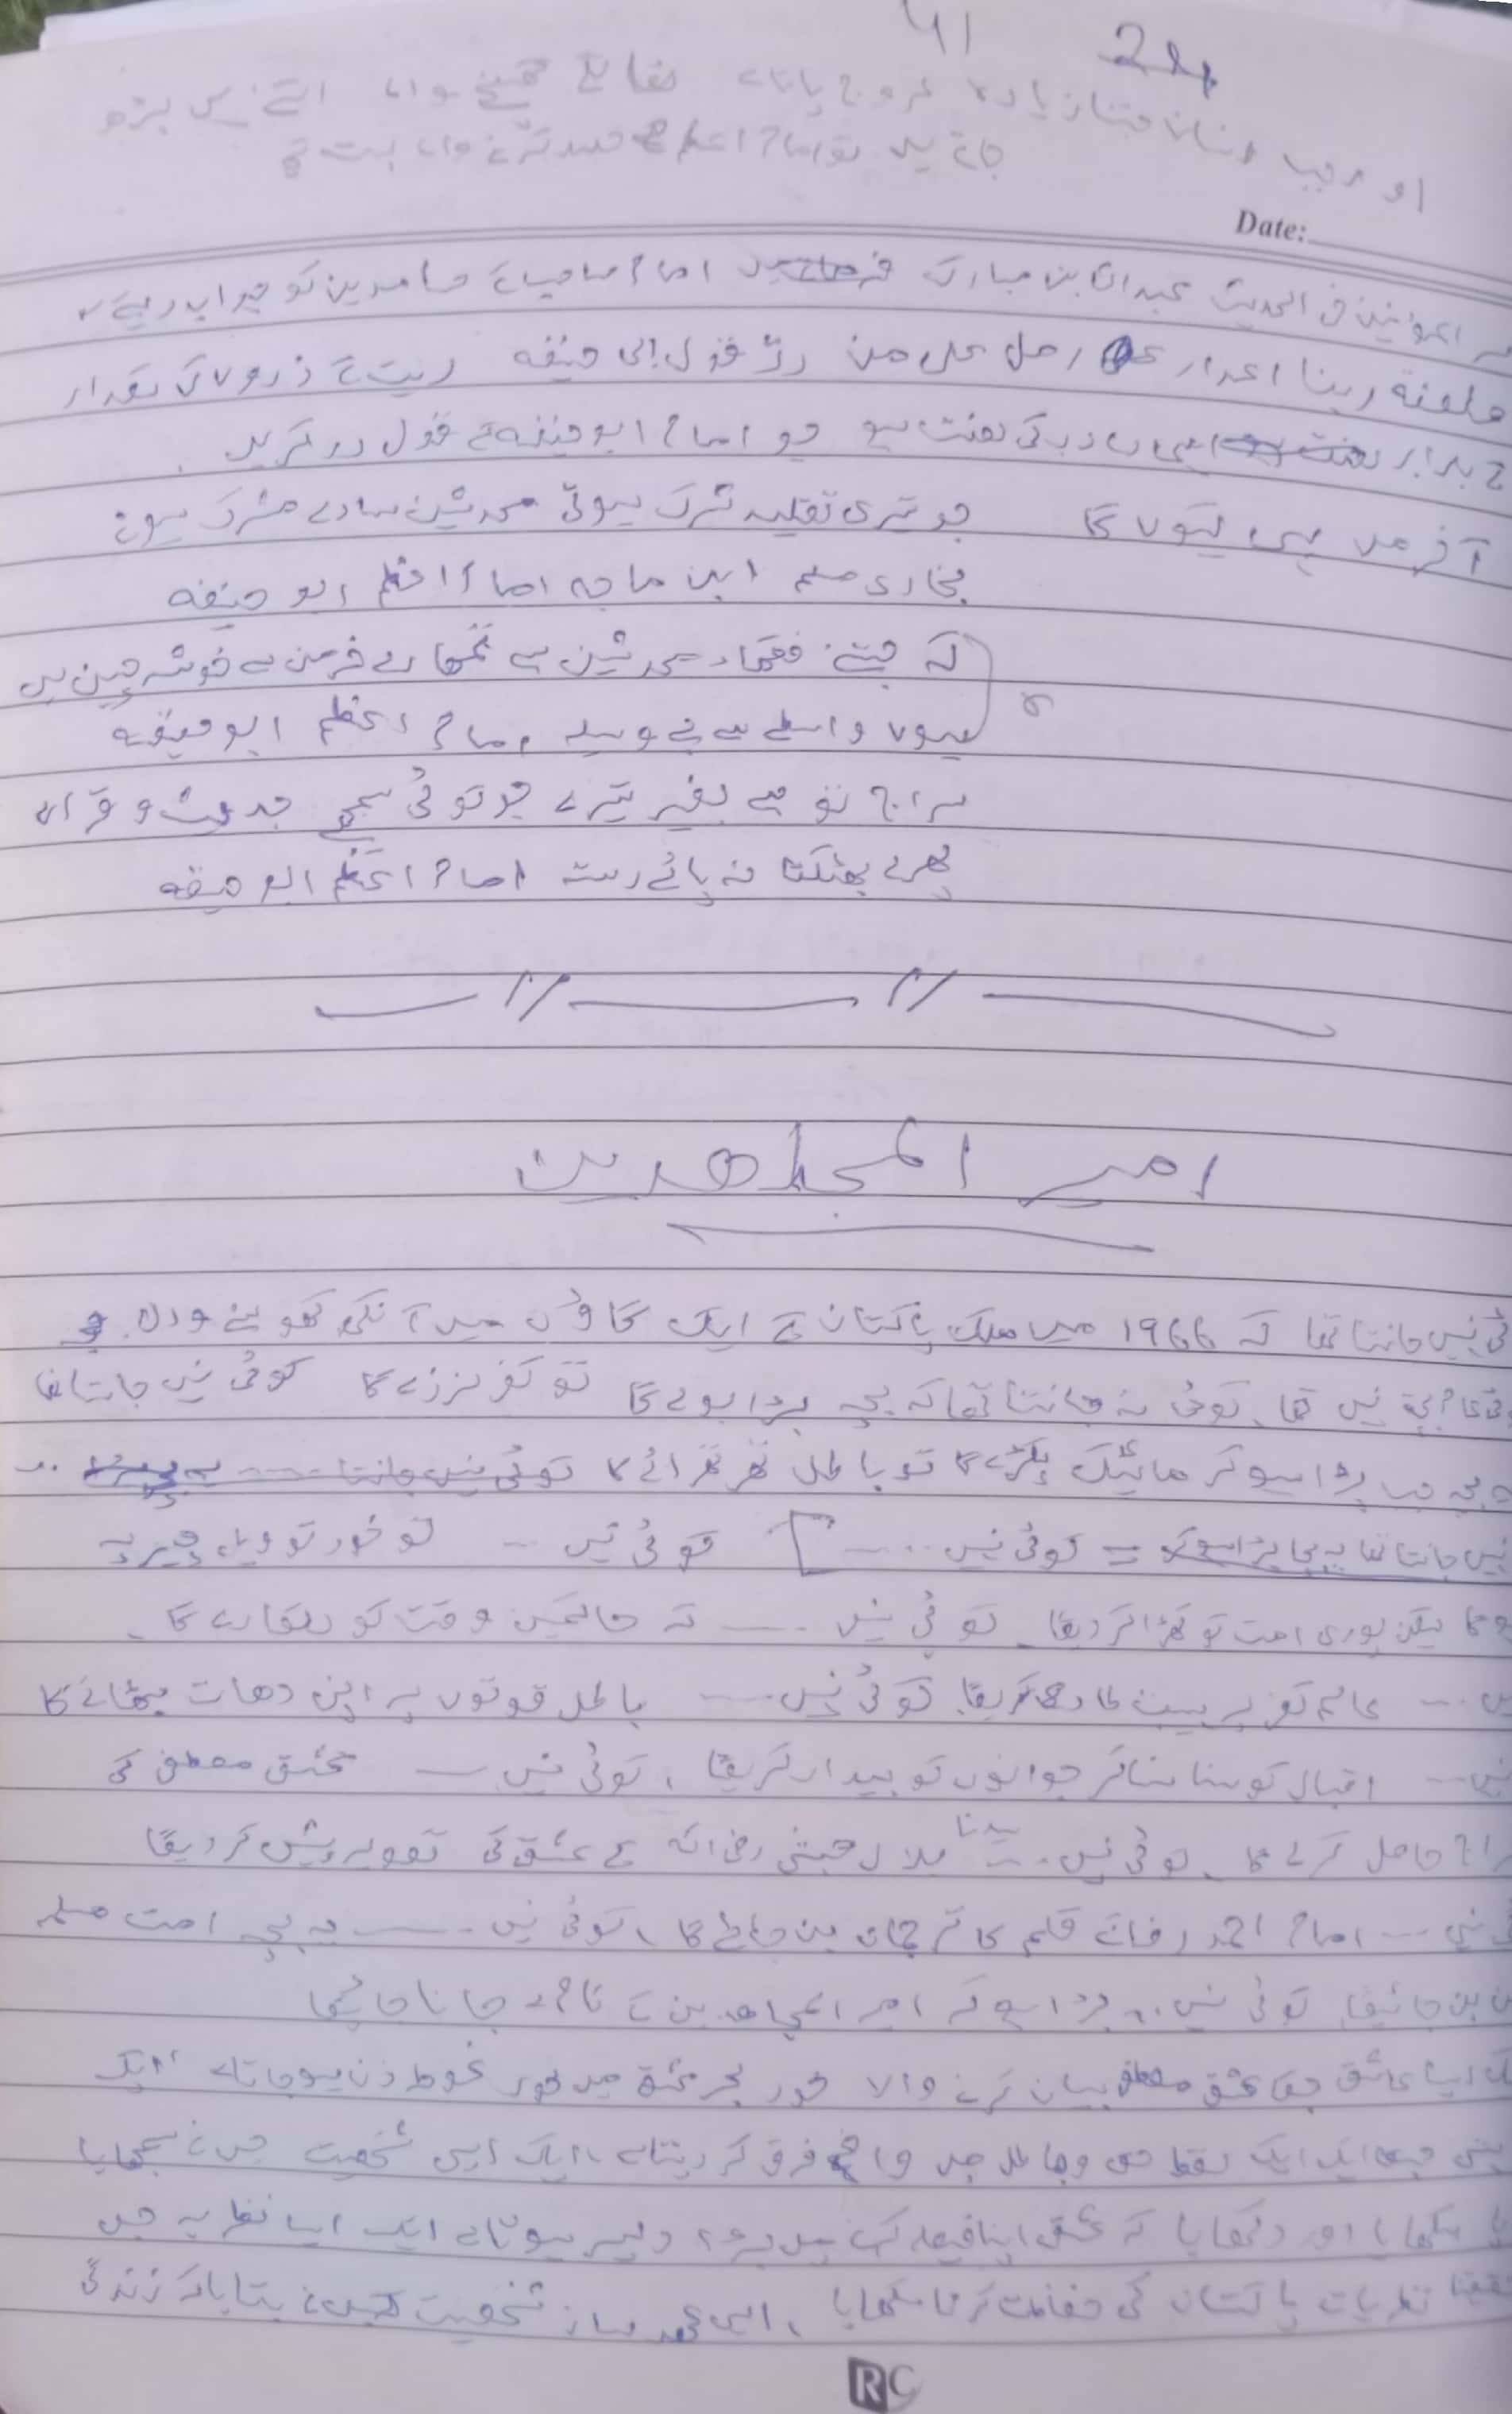 41 24
اور جب انسان جتنا زیادہ عروج پاتا ہے
جاتے ہیں تو امام اعظم کے حسد کرنے والے بہت تھے
Date:
امیر المؤمنین فی الحدیث عبداللہ بن مبارک فرماتے ہیں امام صاحب کے حاسدین کو جواب دیتے ہوئے
فلعنة ربنا اعداد رمل علی من ردّ قول ابی حنیفہ ریت کے ذروں کی تعداد
کے برابر لعنت ہو اس پر رب کی لعنت ہو جو امام ابو حنیفہ کے قول رد کریں
آخر میں یہی کہوں گا جو تیری تقلید شرک ہوتی محدثین سارے مشرک ہوتے
بخاری مسلم ابن ماجہ امام اعظم ابو حنیفہ
کہ جتنے فقہاء محدثین ہیں تمھارے خرمن سے خوشہ چین ہیں
ہوں واسطے سے بے وسیلہ امام اعظم ابو حنیفہ
سراج تو ہے بغیر تیرے جو کوئی سمجھے حدیث و قرآں
پھرے بھٹکتا نہ پائے رستہ امام اعظم ابو حنیفہ
امیر المجاھدین
کوئی نہیں جانتا تھا کہ 1966 میں ملک پاکستان کے ایک گاؤں میں آنکھ کھولنے والا
کوئی عام بچہ نہیں تھا۔ کوئی نہ جانتا تھا کہ بچہ بڑا ہوئے گا تو کفر لرزے گا کوئی نہیں جانتا تھا
یہ بچہ جب بڑا ہو کر مائیک پکڑے گا تو باطل تھرتھرائے گا کوئی نہیں جانتا ....
نہیں جانتا تھا یہ بچا بڑا ہو کر = کوئی نہیں .... کوئی نہیں ... تو خود تو ویل چیر پہ
ہو گا لیکن پوری امت کو کھڑا کر دیگا۔ کوئی نہیں .... کہ حاکمین وقت کو للکارے گا۔
... عالم کفر پر ہیبت طاری کریگا۔ کوئی نہیں .... باطل قوتوں پہ اپنی دھات بیٹھائے گا
نہیں ... اقبال کو سنا سنا کر جوانوں کو بیدار کریگا، کوئی نہیں ... عشق مصطفیٰ کی
حاصل کرے گا۔ کوئی نہیں ... سیدنا بلال حبشی رضی اللہ کے عشق کی تصویر پیش کر دیگا
... امام احمد رضا کے قلم کا ترجمان بن جائے گا، کوئی نہیں ... یہ بچہ امت مسلمہ
بن جائیگا۔ کوئی نہیں.. بڑا ہو کہ امیر المجاھدین کے نام سے جانا جائیگا
ایک ایسا عاشق جسکا عشق مصطفیٰ بیان کرنے والا خود بحر عشق میں خود غوطہ زن ہو جاتا ہے، ایک
جسکا ایک ایک لفظ حق و باطل میں واضح فرق کر دیتا ہے، ایک ایسی شخصیت جس نے سمجھایا
سکھایا اور دکھایا کہ عشق اپنا فیصلہ دلیر ہوتا ہے ایک ایسا نظریہ جس
نظریات پاکستان کی حفاظت کرنا سکھایا، ایسی عہد ساز شخصیت جس نے بتایا کہ زندگی
RC